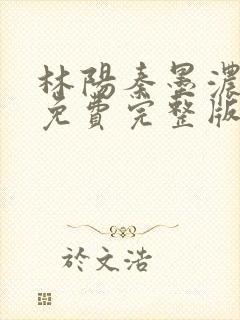 林陽秦墨濃
免費完整版
於文浩